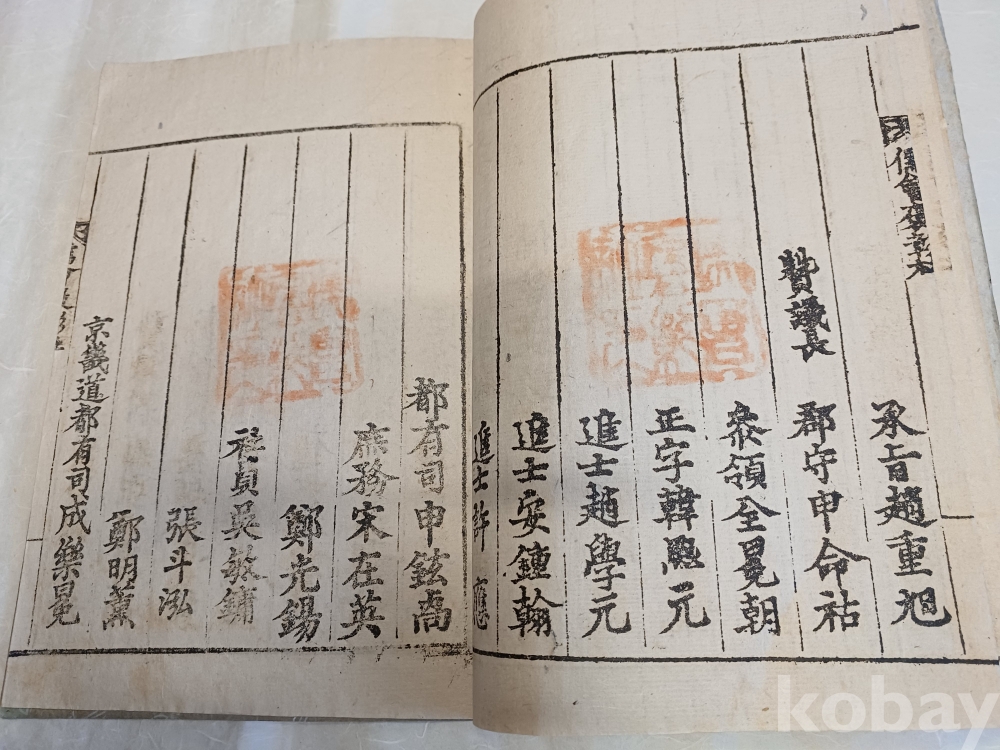 承旨趙重旭
贊議長
郡守申命祜
叅領全冕朝
正字韓熙元
進士趙學元
進士安鍾翰
進士 應
都有司申鉉卨
庶務宋在英
鄭光錫
社員吳 鏞
張斗泓
鄭明薰
京畿道都有司成樂晃
kobay